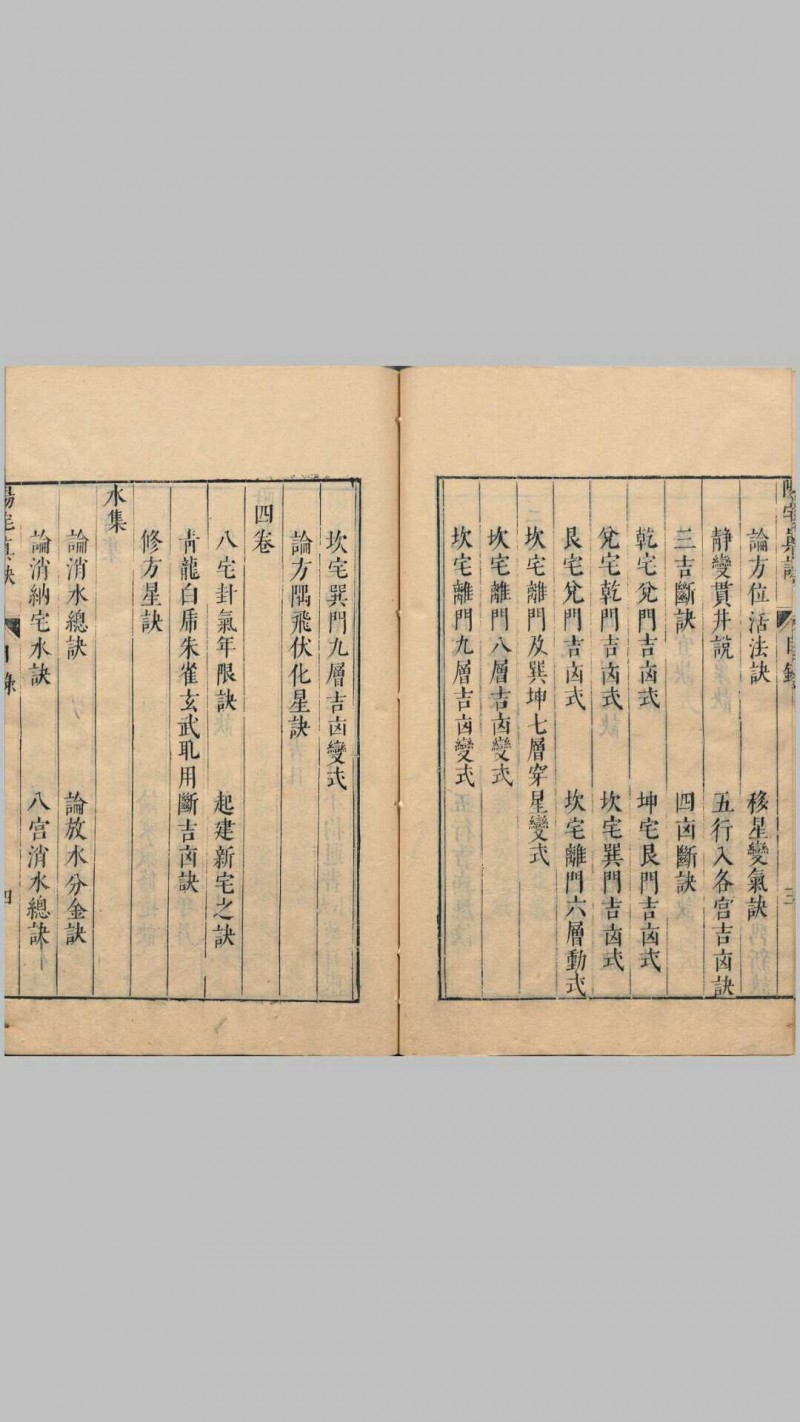 陽宅真訣 目錄 三
論方位活法訣 移星變氣訣
靜變貫井說 五行入各宮吉凶訣
三吉斷訣 四凶斷訣
乾宅兌門吉凶式 坤宅艮門吉凶式
兌宅乾門吉凶式 坎宅巽門吉凶式
艮宅兌門吉凶式 坎宅離門六層動式
坎宅離門及巽坤七層穿星變式
坎宅離門八層吉凶變式
坎宅離門九層吉凶變式
坎宅巽門九層吉凶變式
論方隅飛伏化星訣
四卷
八宅封氣年限訣 起建新宅之訣
青龍白虎朱雀玄武耴用斷吉凶訣
修方星訣
水集
論消水總訣 論放水分金訣
論消納宅水訣 八宮消水總訣
陽宅真訣 目錄 四